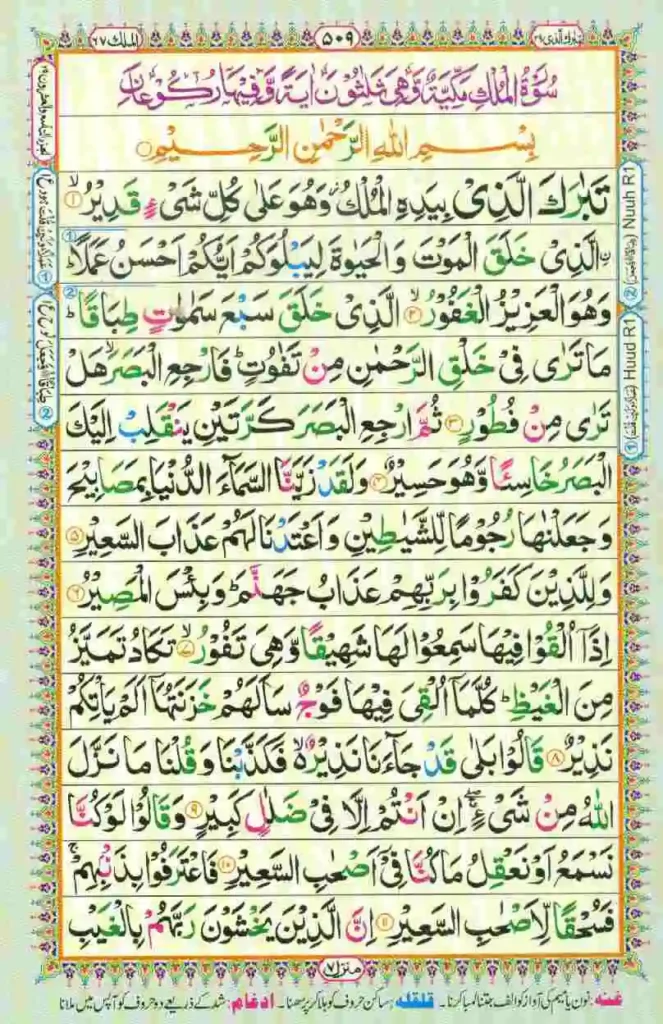 تبارك الذی ٢٩
٥٠٩
الملك ٦٧
سُوْرَةُ الْمُلْكِ مَكِّيَّةٌ وَّهِيَ ثَلٰثُوْنَ اٰيَةً وَّفِيْهَا رُكُوْعَانِ
بِسْمِ اللّٰهِ الرَّحْمٰنِ الرَّحِيْمِ
تَبٰرَكَ الَّذِیْ بِيَدِهِ الْمُلْكُ وَهُوَ عَلٰى كُلِّ شَیْءٍ قَدِيْرُ ۙ﴿١﴾
ۨالَّذِیْ خَلَقَ الْمَوْتَ وَالْحَيٰوةَ لِيَبْلُوَكُمْ اَيُّكُمْ اَحْسَنُ عَمَلًا ؕ
وَهُوَ الْعَزِيْزُ الْغَفُوْرُ ۙ﴿٢﴾ الَّذِیْ خَلَقَ سَبْعَ سَمٰوٰتٍ طِبَاقًا ؕ
مَا تَرٰى فِیْ خَلْقِ الرَّحْمٰنِ مِنْ تَفٰوُتٍ ؕ فَارْجِعِ الْبَصَرَ ۙ هَلْ
تَرٰى مِنْ فُطُوْرٍ ﴿٣﴾ ثُمَّ ارْجِعِ الْبَصَرَ كَرَّتَيْنِ يَنْقَلِبْ اِلَيْكَ
الْبَصَرُ خَاسِئًا وَّهُوَ حَسِيْرٌ ﴿٤﴾ وَلَقَدْ زَيَّنَّا السَّمَآءَ الدُّنْيَا بِمَصَابِيْحَ
وَجَعَلْنٰهَا رُجُوْمًا لِّلشَّيٰطِيْنِ وَاَعْتَدْنَا لَهُمْ عَذَابَ السَّعِيْرِ ﴿٥﴾
وَلِلَّذِيْنَ كَفَرُوْا بِرَبِّهِمْ عَذَابُ جَهَنَّمَ ؕ وَبِئْسَ الْمَصِيْرُ ﴿٦﴾
اِذَاۤ اُلْقُوْا فِيْهَا سَمِعُوْا لَهَا شَهِيْقًا وَّهِیَ تَفُوْرُ ۙ﴿٧﴾ تَكَادُ تَمَيَّزُ
مِنَ الْغَيْظِ ؕ كُلَّمَاۤ اُلْقِیَ فِيْهَا فَوْجٌ سَاَلَهُمْ خَزَنَتُهَاۤ اَلَمْ يَاْتِكُمْ
نَذِيْرٌ ﴿٨﴾ قَالُوْا بَلٰى قَدْ جَآءَنَا نَذِيْرٌ ۙ۬ فَكَذَّبْنَا وَقُلْنَا مَا نَزَّلَ
اللّٰهُ مِنْ شَیْءٍ ۖۚ اِنْ اَنْتُمْ اِلَّا فِیْ ضَلٰلٍ كَبِيْرٍ ﴿٩﴾ وَقَالُوْا لَوْ كُنَّا
نَسْمَعُ اَوْ نَعْقِلُ مَا كُنَّا فِیْۤ اَصْحٰبِ السَّعِيْرِ ﴿١٠﴾ فَاعْتَرَفُوْا بِذَنْۢبِهِمْ ۚ
فَسُحْقًا لِّاَصْحٰبِ السَّعِيْرِ ﴿١١﴾ اِنَّ الَّذِيْنَ يَخْشَوْنَ رَبَّهُمْ بِالْغَيْبِ
Nuuh R1
Huud R1
منزل ٧
غنه: نون یا میم کی آواز کو الف جتنا لمبا کرنا۔ قلقله: ساکن حروف کو ہلا کر پڑھنا۔ ادغام: شد کے ذریعے دو حروف کو آپس میں ملانا